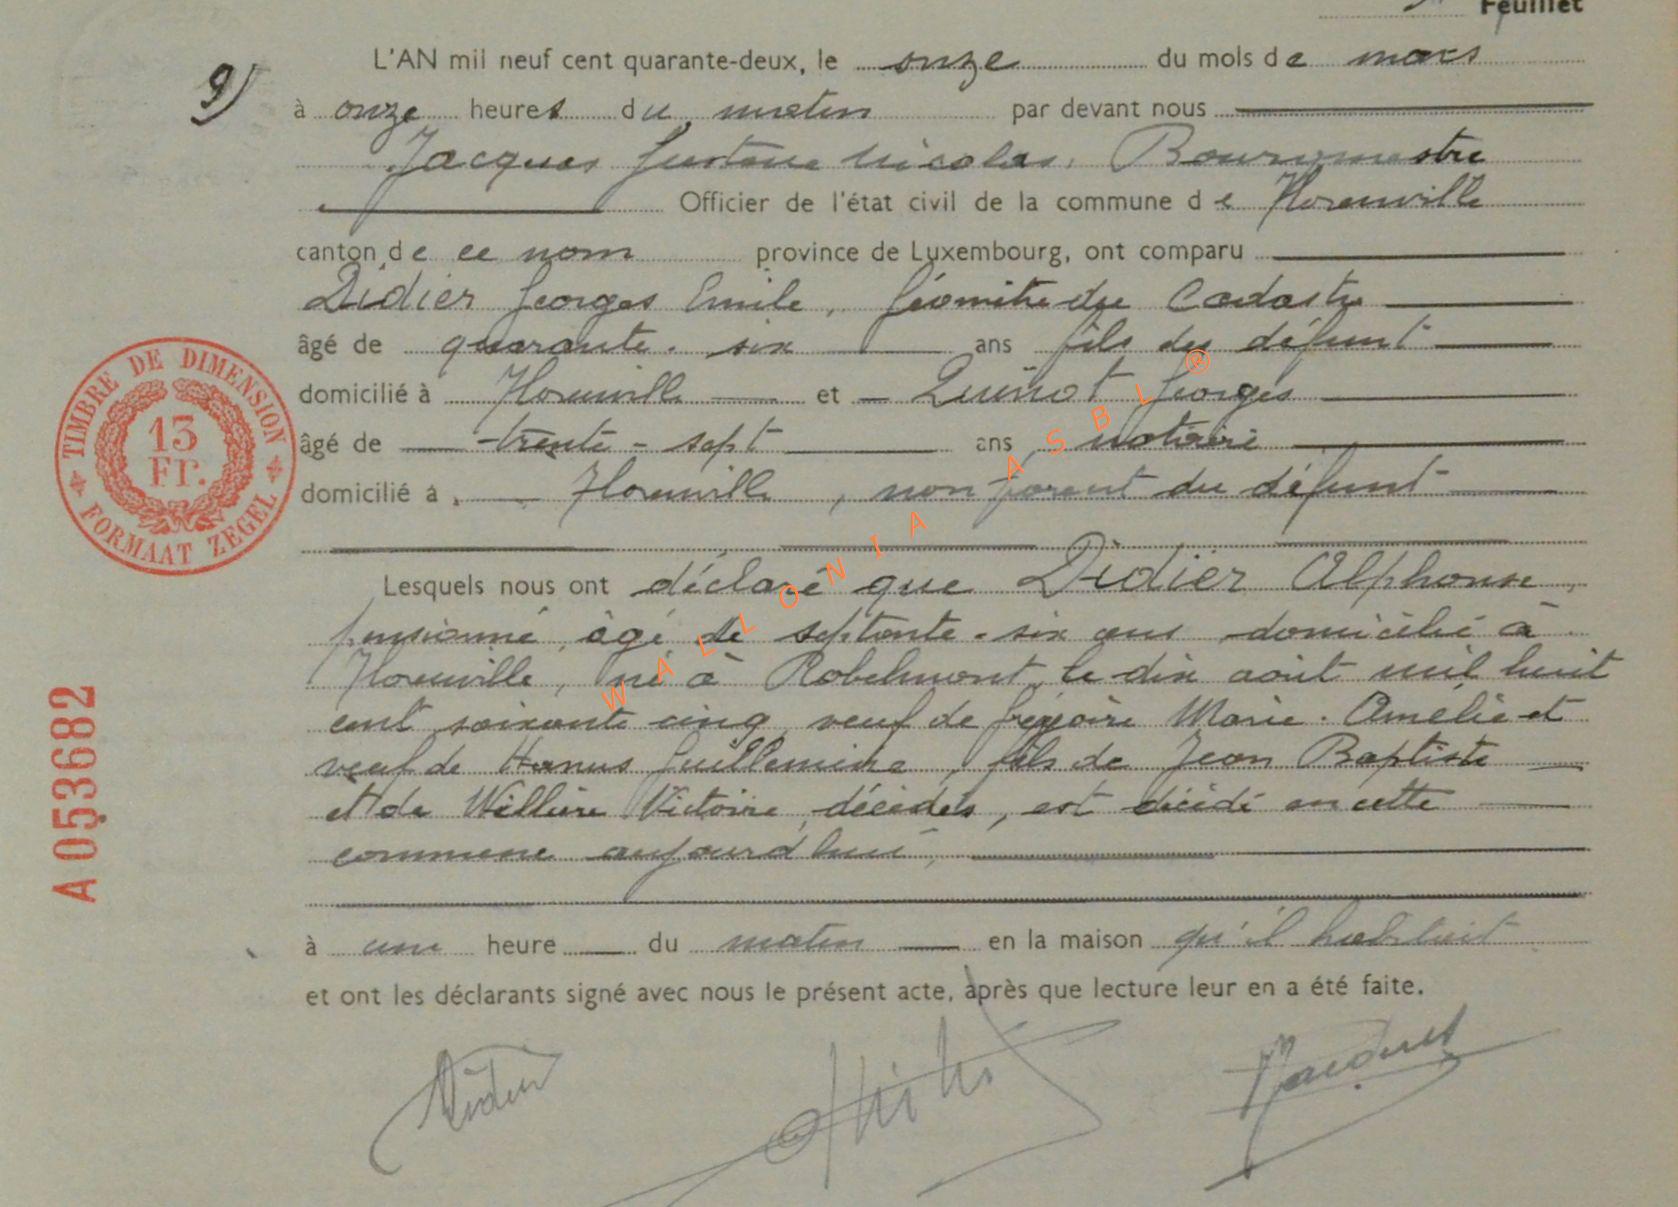 Feuillet
9)
L'AN mil neuf cent quarante-deux, le onze du mois de mars
à onze heures du matin par devant nous
Jacques Gustave Nicolas, Bourgmestre
Officier de l'état civil de la commune de Florenville
canton de ce nom province de Luxembourg, ont comparu
Didier Georges Emile, Géomètre du Cadastre
âgé de quarante-six ans fils du défunt
domicilié à Florenville et Quinot Georges
âgé de trente-sept ans, notaire
domicilié à Florenville, non parent du défunt
Lesquels nous ont déclaré que Didier Alphonse,
pensionné, âgé de septante-six ans domicilié à
Florenville, né à Robelmont, le dix août mil huit
cent soixante cinq veuf de Grégoire Marie-Amélie et
veuf de Hanus Guillemine, fils de Jean Baptiste
et de Willière Victoire, décédés, est décédé en cette
commune aujourd'hui,
à une heure du matin en la maison qu'il habitait
et ont les déclarants signé avec nous le présent acte, après que lecture leur en a été faite.
Didier
TIMBRE DE DIMENSION
13
Fr.
FORMAAT ZEGEL
A 053682
WALLONIA ASBL®